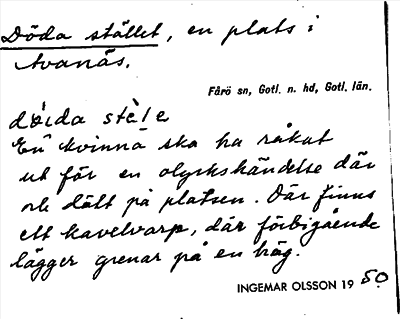 Döda stället, en plats i
Avanäs.
Fårö sn, Gotl. n. hd, Gotl. län.
dȯida stė̀le
En kvinna ska ha råkat
ut för en olyckshändelse där
och dött på platsen. Där finns
ett kavelvarp, där förbigående
lägger grenar på en hög.
INGEMAR OLSSON 1950